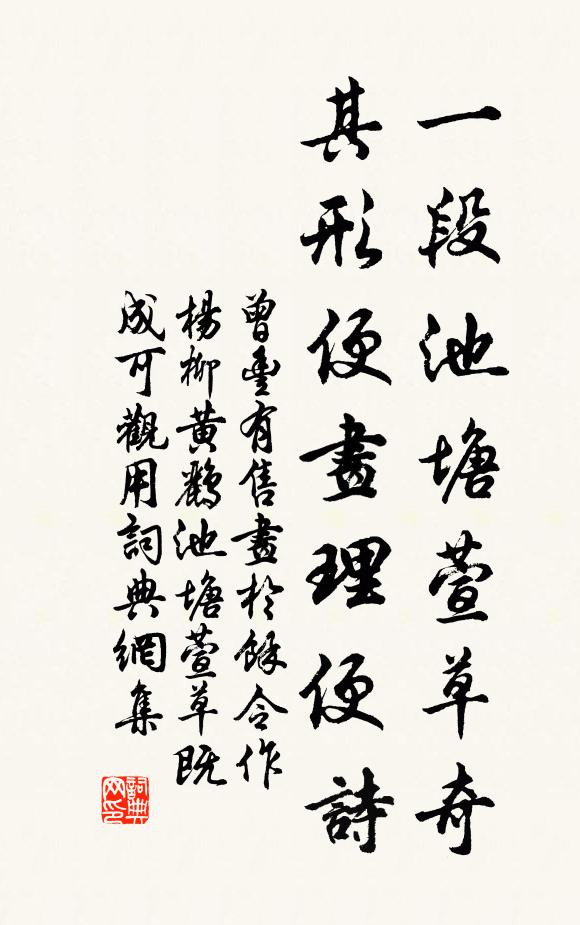 一段池塘萱草奇
其形便畫理便詩
曾豐有售畫於餘令作
楊柳黃鸝池塘萱草既
成可觀用詞典網集
詞典
网印